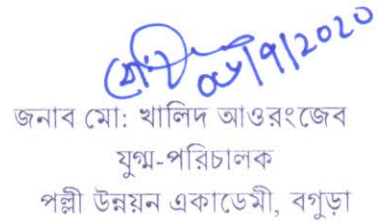 জনাব মো: খালিদ আওরংজেব
যুগ্ম-পরিচালক
পল্লী উন্নয়ন একাডেমী, বগুড়া